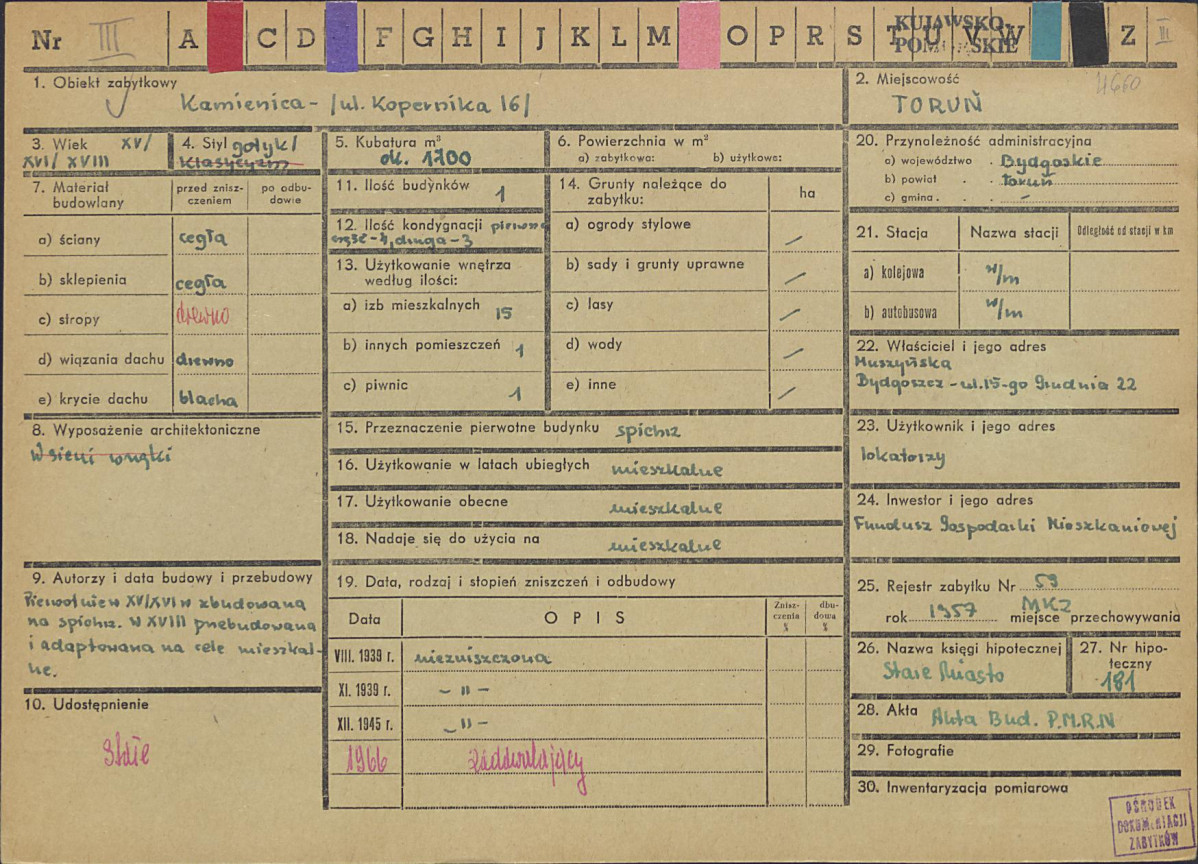 Nr III A C D F G H I J K L M O P R S T U V W Z III
KUJAWSKO
POMORSKIE
1. Obiekt zabytkowy
Kamienica - /ul. Kopernika 16/
2. Miejscowość
4660
TORUŃ
3. Wiek XV/
XVI/ XVIII
4. Styl gotyk/
klasycyzm
5. Kubatura m³
ok. 1700
6. Powierzchnia w m²
a) zabytkowa: b) użytkowa:
7. Materiał
budowlany
przed znisz-
czeniem
po odbu-
dowie
a) ściany cegła
b) sklepienia cegła
c) stropy drewno
d) wiązania dachu drewno
e) krycie dachu blacha
8. Wyposażenie architektoniczne
W sieni wnęki
9. Autorzy i data budowy i przebudowy
Pierwotnie w XV/XVI w zbudowana
na spichrz. W XVIII przebudowana
i adaptowana na cele mieszkal-
ne.
10. Udostępnienie
Stałe
11. Ilość budynków 1
12. Ilość kondygnacji pierwsza
część - 4, druga - 3
13. Użytkowanie wnętrza
według ilości:
a) izb mieszkalnych 15
b) innych pomieszczeń 1
c) piwnic 1
14. Grunty należące do
zabytku:
ha
a) ogrody stylowe /
b) sady i grunty uprawne /
c) lasy /
d) wody /
e) inne /
15. Przeznaczenie pierwotne budynku spichrz
16. Użytkowanie w latach ubiegłych mieszkalne
17. Użytkowanie obecne mieszkalne
18. Nadaje się do użycia na mieszkalne
19. Data, rodzaj i stopień zniszczeń i odbudowy
Data
OPIS
Znisz-
czenia
%
dbu-
dowa
%
VIII. 1939 r. niezniszczona
XI. 1939 r. - " -
XII. 1945 r. - " -
1966 zadowalający
20. Przynależność administracyjna
a) województwo . Bydgoskie
b) powiat . . Toruń
c) gmina . . -
21. Stacja
Nazwa stacji
Odległość od stacji w km
a) kolejowa w/m
b) autobusowa w/m
22. Właściciel i jego adres
Muszyńska
Bydgoszcz - ul. 15-go Grudnia 22
23. Użytkownik i jego adres
lokatorzy
24. Inwestor i jego adres
Fundusz Gospodarki Mieszkaniowej
25. Rejestr zabytku Nr 59
rok 1957 MKZ miejsce przechowywania
26. Nazwa księgi hipotecznej
Stare Miasto
27. Nr hipo-
teczny
181
28. Akta Akta Bud. P.M.R.N
29. Fotografie
30. Inwentaryzacja pomiarowa
OŚRODEK
DOKUMENTACJI
ZABYTKÓW